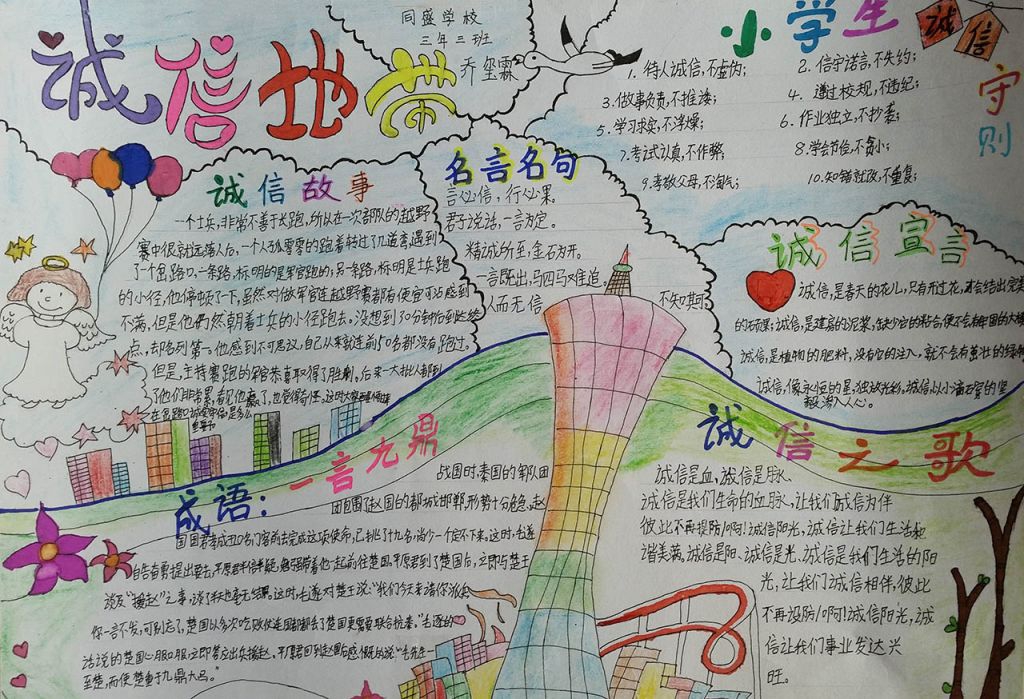 诚信地带
同盛学校
三年三班
乔玺霖
小学生
诚信
守则
1. 待人诚信,不虚伪;
2. 信守诺言,不失约;
3.做事负责,不推诿;
4. 遵过校规,不违纪;
5.学习求实,不浮燥;
6.作业独立,不抄袭;
7.考试认真,不作弊;
8.学会节俭,不贪小;
9.孝敬父母,不淘气;
10.知错就改,不重复;
诚信故事
一个士兵,非常不善于长跑,所以在一次部队的越野
赛中很就远落人后,一个人孤零零的跑着转过了几道弯遇到
了一个岔路口,一条路,标明的是军官跑的;另一条路,标明是士兵跑
的小径,他停顿了一下,虽然对做军官连越野赛都有便宜可沾感到
不满,但是他仍然朝着士兵的小径跑去。没想到30分钟后到达终
点,却名列第一。他感到不可思议,自己从来就连前50名都没有跑过。
但是,主持赛跑的军官恭喜取得了胜利。后来一大批人都到
了他们非常累,看见他赢了,也觉得奇怪,这时大家
在岔路口诚实守信是多么
重要
名言名句
言必信,行必果。
君子说话,一言为定。
精诚所至,金石为开。
一言既出,马四马又难追。
人而无信 不知其可
诚信宣言
诚信,是春天的花儿,只有开过花,才会结出完美
的硕果;诚信,是建房的泥浆,缺少它的粘合,便不会有牢固的大楼
诚信,是植物的肥料,没有它的注入,就不会有茁壮的绿
诚信,像永恒的星,独放光彩,诚信,以小滴石穿的坚
毅,渗入人心。
成语:一言九鼎
战国时,秦国的军队团
团包围了赵国的都城邯郸,形势十分危急,赵
国国君孝成王
自告奋勇提出要去,平原君半信半疑,勉强带着他一起前往楚国。平原君到了楚国后,立即与楚王
谈及“援赵”之事,谈了半天也毫无结果。这时,毛遂对楚王说:“我们今天来请你派
你一言不发,可别忘了,楚国
话说的楚国心服口服,立即答应出兵援赵。平原君回到赵国后感慨地说:“毛先
至楚,而使楚重于九鼎大吕。”
诚信之歌
诚信是血,诚信是脉,
诚信是我们生命的血脉,让我们诚信为伴
彼此不再提防!啊!诚信阳光,诚信让我们生活和
谐美满。诚信是阳,诚信是光,诚信是我们生活的阳
光,让我们诚信相伴,彼此
不再设防!啊!诚信阳光,诚
信让我们事业发达兴
旺。